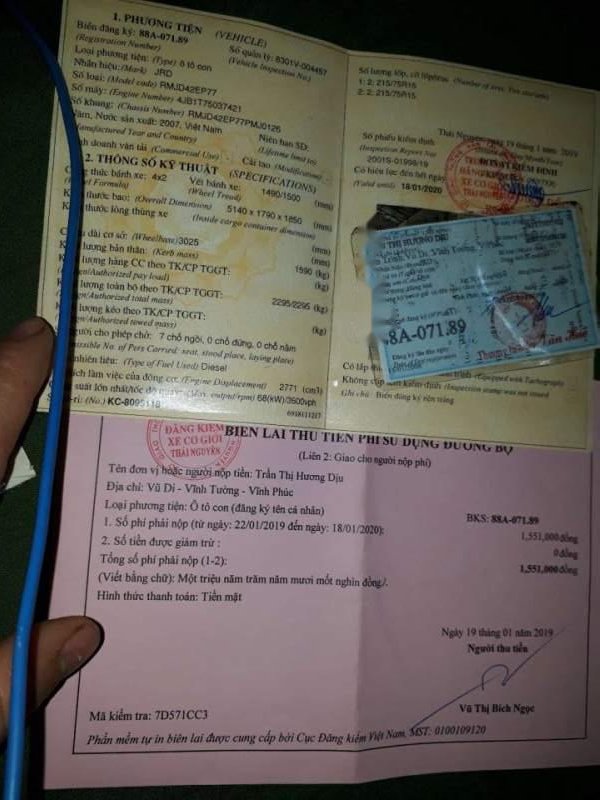 1. PHƯƠNG TIỆN (VEHICLE)
Biển đăng ký: 88A-071.89
(Registration Number)
Số quản lý: 8301V-004457
(Vehicle Inspection No.)
Loại phương tiện: (Type) ô tô con
Nhãn hiệu: (Mark) JRD
Số loại: (Model code) RMJD42EP77
Số máy: (Engine Number) 4JB1T75037421
Số khung: (Chassis Number) RMJD42EP77PMJ0126
Năm, Nước sản xuất: 2007, Việt Nam
(Manufactured Year and Country)
Niên hạn SD:
(Lifetime limit to)
Kinh doanh vận tải (Commercial Use)
Cải tạo (Modification)
2. THÔNG SỐ KỸ THUẬT (SPECIFICATIONS)
Công thức bánh xe: 4x2 Vết bánh xe: 1490/1500 (mm)
(Wheel Formula) (Wheel Tread)
Kích thước bao: (Overall Dimension) 5140 x 1790 x 1850 (mm)
Kích thước lòng thùng xe (mm)
(Inside cargo container dimension)
dài cơ sở: (Wheelbase) 3025 (mm)
lượng bản thân: (Kerb mass) 1590 (kg)
lượng hàng CC theo TK/CP TGGT:
(Design/Authorized pay load) (kg)
lượng toàn bộ theo TK/CP TGGT: 2295/2295 (kg)
(Design/Authorized total mass)
lượng kéo theo TK/CP TGGT: (kg)
(Design/Authorized towed mass)
người cho phép chở: 7 chỗ ngồi, 0 chỗ đứng, 0 chỗ nằm
(Permissible No. of Pers Carried: seat, stood place, laying place)
nhiên liệu: (Type of Fuel Used) Diesel
tích làm việc của động cơ: (Engine Displacement) 2771 (cm3)
suất lớn nhất/tốc độ quay: (Max. output/rpm) 68(kW)/3600vph
(No.) KC-8095118
Số lượng lốp, cỡ lốp/trục (Number of tires, Tire size/axle)
1: 2; 215/75R15
2: 2; 215/75R15
Thái Nguyên, ngày 19 tháng 1 năm 2019
Số phiếu kiểm định
(Inspection Report No)
2001S-01998/19
Có hiệu lực đến hết ngày
(Valid until) 18/01/2020
ĐƠN VỊ KIỂM ĐỊNH
THỊ HƯƠNG DỊU
Vũ Di, Vĩnh Tường
8A-071.89
Có lắp
(Equipped with Tachograph)
Không cấp tem kiểm định (Inspection stamp was not issued)
Ghi chú: Biển đăng ký nền trắng
ĐĂNG KIỂM
XE CƠ GIỚI
THÁI NGUYÊN
BIÊN LAI THU TIỀN PHÍ SỬ DỤNG ĐƯỜNG BỘ
(Liên 2: Giao cho người nộp phí)
Tên đơn vị hoặc người nộp tiền: Trần Thị Hương Dịu
Địa chỉ: Vũ Di - Vĩnh Tường - Vĩnh Phúc
Loại phương tiện: Ô tô con (đăng ký tên cá nhân) BKS: 88A-071.89
1. Số phí phải nộp (từ ngày: 22/01/2019 đến ngày: 18/01/2020): 1,551,000đồng
2. Số tiền được giảm trừ: 0đồng
Tổng số phí phải nộp (1-2): 1,551,000đồng
(Viết bằng chữ): Một triệu năm trăm năm mươi mốt nghìn đồng/.
Hình thức thanh toán: Tiền mặt
Ngày 19 tháng 01 năm 2019
Người thu tiền
Vũ Thị Bích Ngọc
Mã kiểm tra: 7D571CC3
Phần mềm tự in biên lai được cung cấp bởi Cục Đăng kiểm Việt Nam, MST: 0100109120